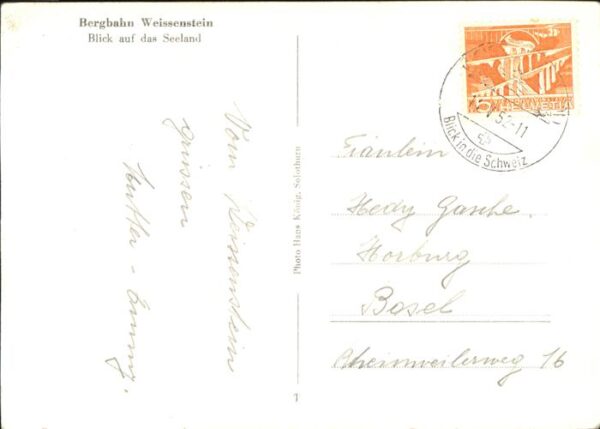 Bergbahn Weissenstein
Blick auf das Seeland
Vom Weissenstein
grüssen
Mutter - Emmy.
Photo Hans König, Solothurn
T
52-11
Blick in die Schweiz
HELVETIA
Fräulein
Hedy Gasche.
Horburg
Basel
16